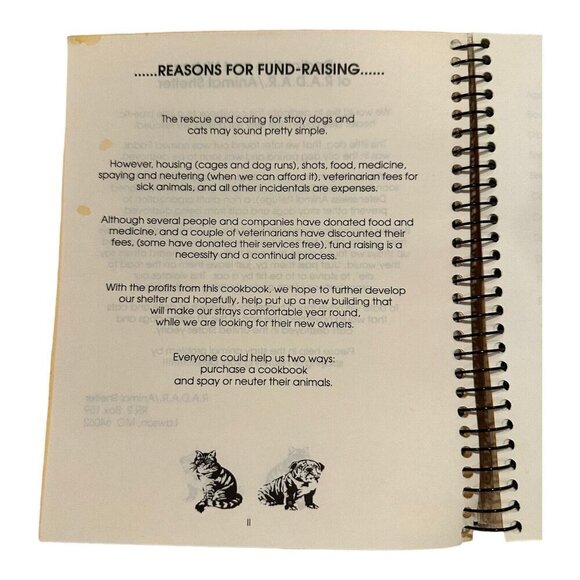 ......REASONS FOR FUND-RAISING......
The rescue and caring for stray dogs and
cats may sound pretty simple.
However, housing (cages and dog runs), shots, food, medicine,
spaying and neutering (when we can afford it), veterinarian fees for
sick animals, and all other incidentals are expenses.
Although several people and companies have donated food and
medicine, and a couple of veterinarians have discounted their
fees, (some have donated their services free), fund raising is a
necessity and a continual process.
With the profits from this cookbook, we hope to further develop
our shelter and hopefully, help put up a new building that
will make our strays comfortable year round,
while we are looking for their new owners.
Everyone could help us two ways:
purchase a cookbook
and spay or neuter their animals.
R.A.D.A.R./Animal Shelter
RR 2, Box 159
Lawson, MO. 64062
II